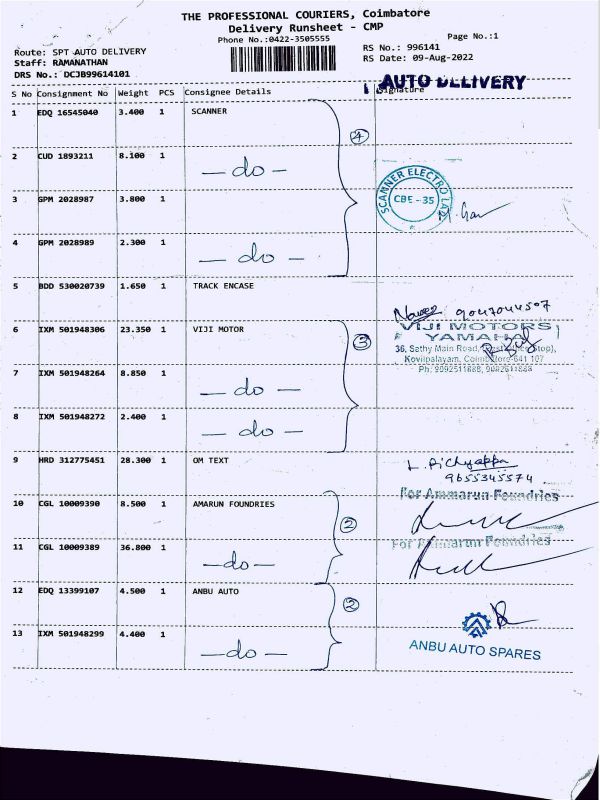 THE PROFESSIONAL COURIERS, Coimbatore
Delivery Runsheet - CMP
Phone No.:0422-3505555
Page No.:1
Route: SPT AUTO DELIVERY
Staff: RAMANATHAN
DRS No.: DCJB99614101
RS No.: 996141
RS Date: 09-Aug-2022
AUTO DELIVERY
S No Consignment No Weight PCS Consignee Details Signature
1 EDQ 16545040 3.400 1 SCANNER
4
2 CUD 1893211 8.100 1 — do —
SCANNER ELECTRO LAB
CBE - 35
3 GPM 2028987 3.800 1
4 GPM 2028989 2.300 1 — do —
5 BDD 530020739 1.650 1 TRACK ENCASE
9047044507
6 IXM 501948306 23.350 1 VIJI MOTOR
3
VIJI MOTORS
YAMAHA
36, Sathy Main Road,
Kovilpalayam, Coimbatore-641 107
Ph: 9092511888,
7 IXM 501948264 8.850 1 — do —
8 IXM 501948272 2.400 1 — do —
9 HRD 312775451 28.300 1 OM TEXT
L. Pichyappa
9655345574
For Ammarun Foundries
10 CGL 10009390 8.500 1 AMARUN FOUNDRIES
2
For Ammarun Foundries
11 CGL 10009389 36.800 1 —do—
12 EDQ 13399107 4.500 1 ANBU AUTO
2
13 IXM 501948299 4.400 1 —do—
ANBU AUTO SPARES